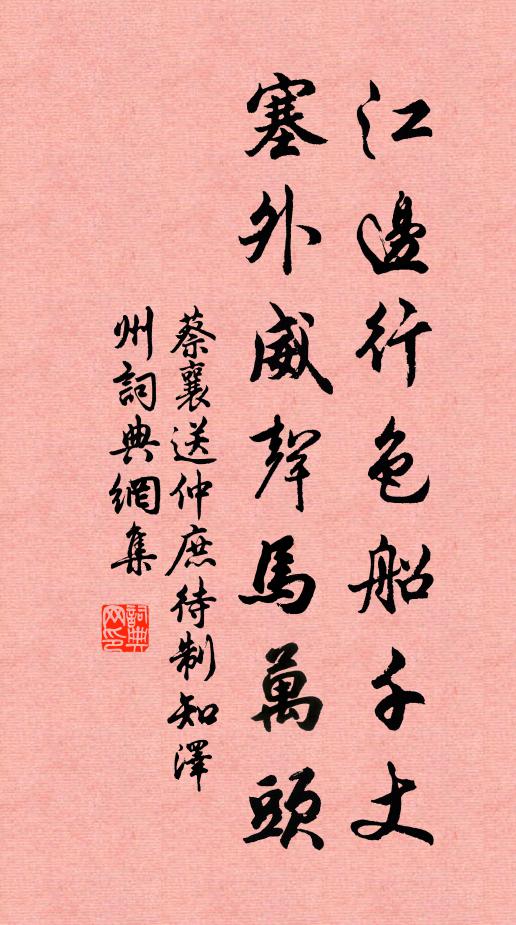 江邊行色船千丈
塞外威聲馬萬頭
蔡襄送仲庶待制知澤
州詞典網集
詞典網印